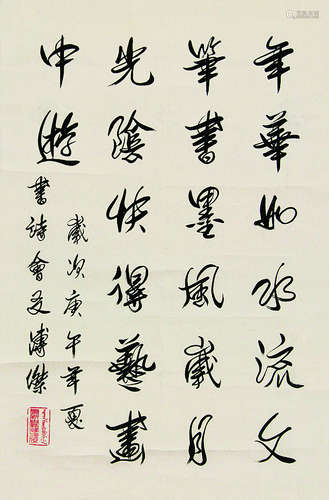 年華如水流文
筆書墨風歲月
光陰快得藝畫
中遊
歲次庚午年夏
書詩會友溥傑